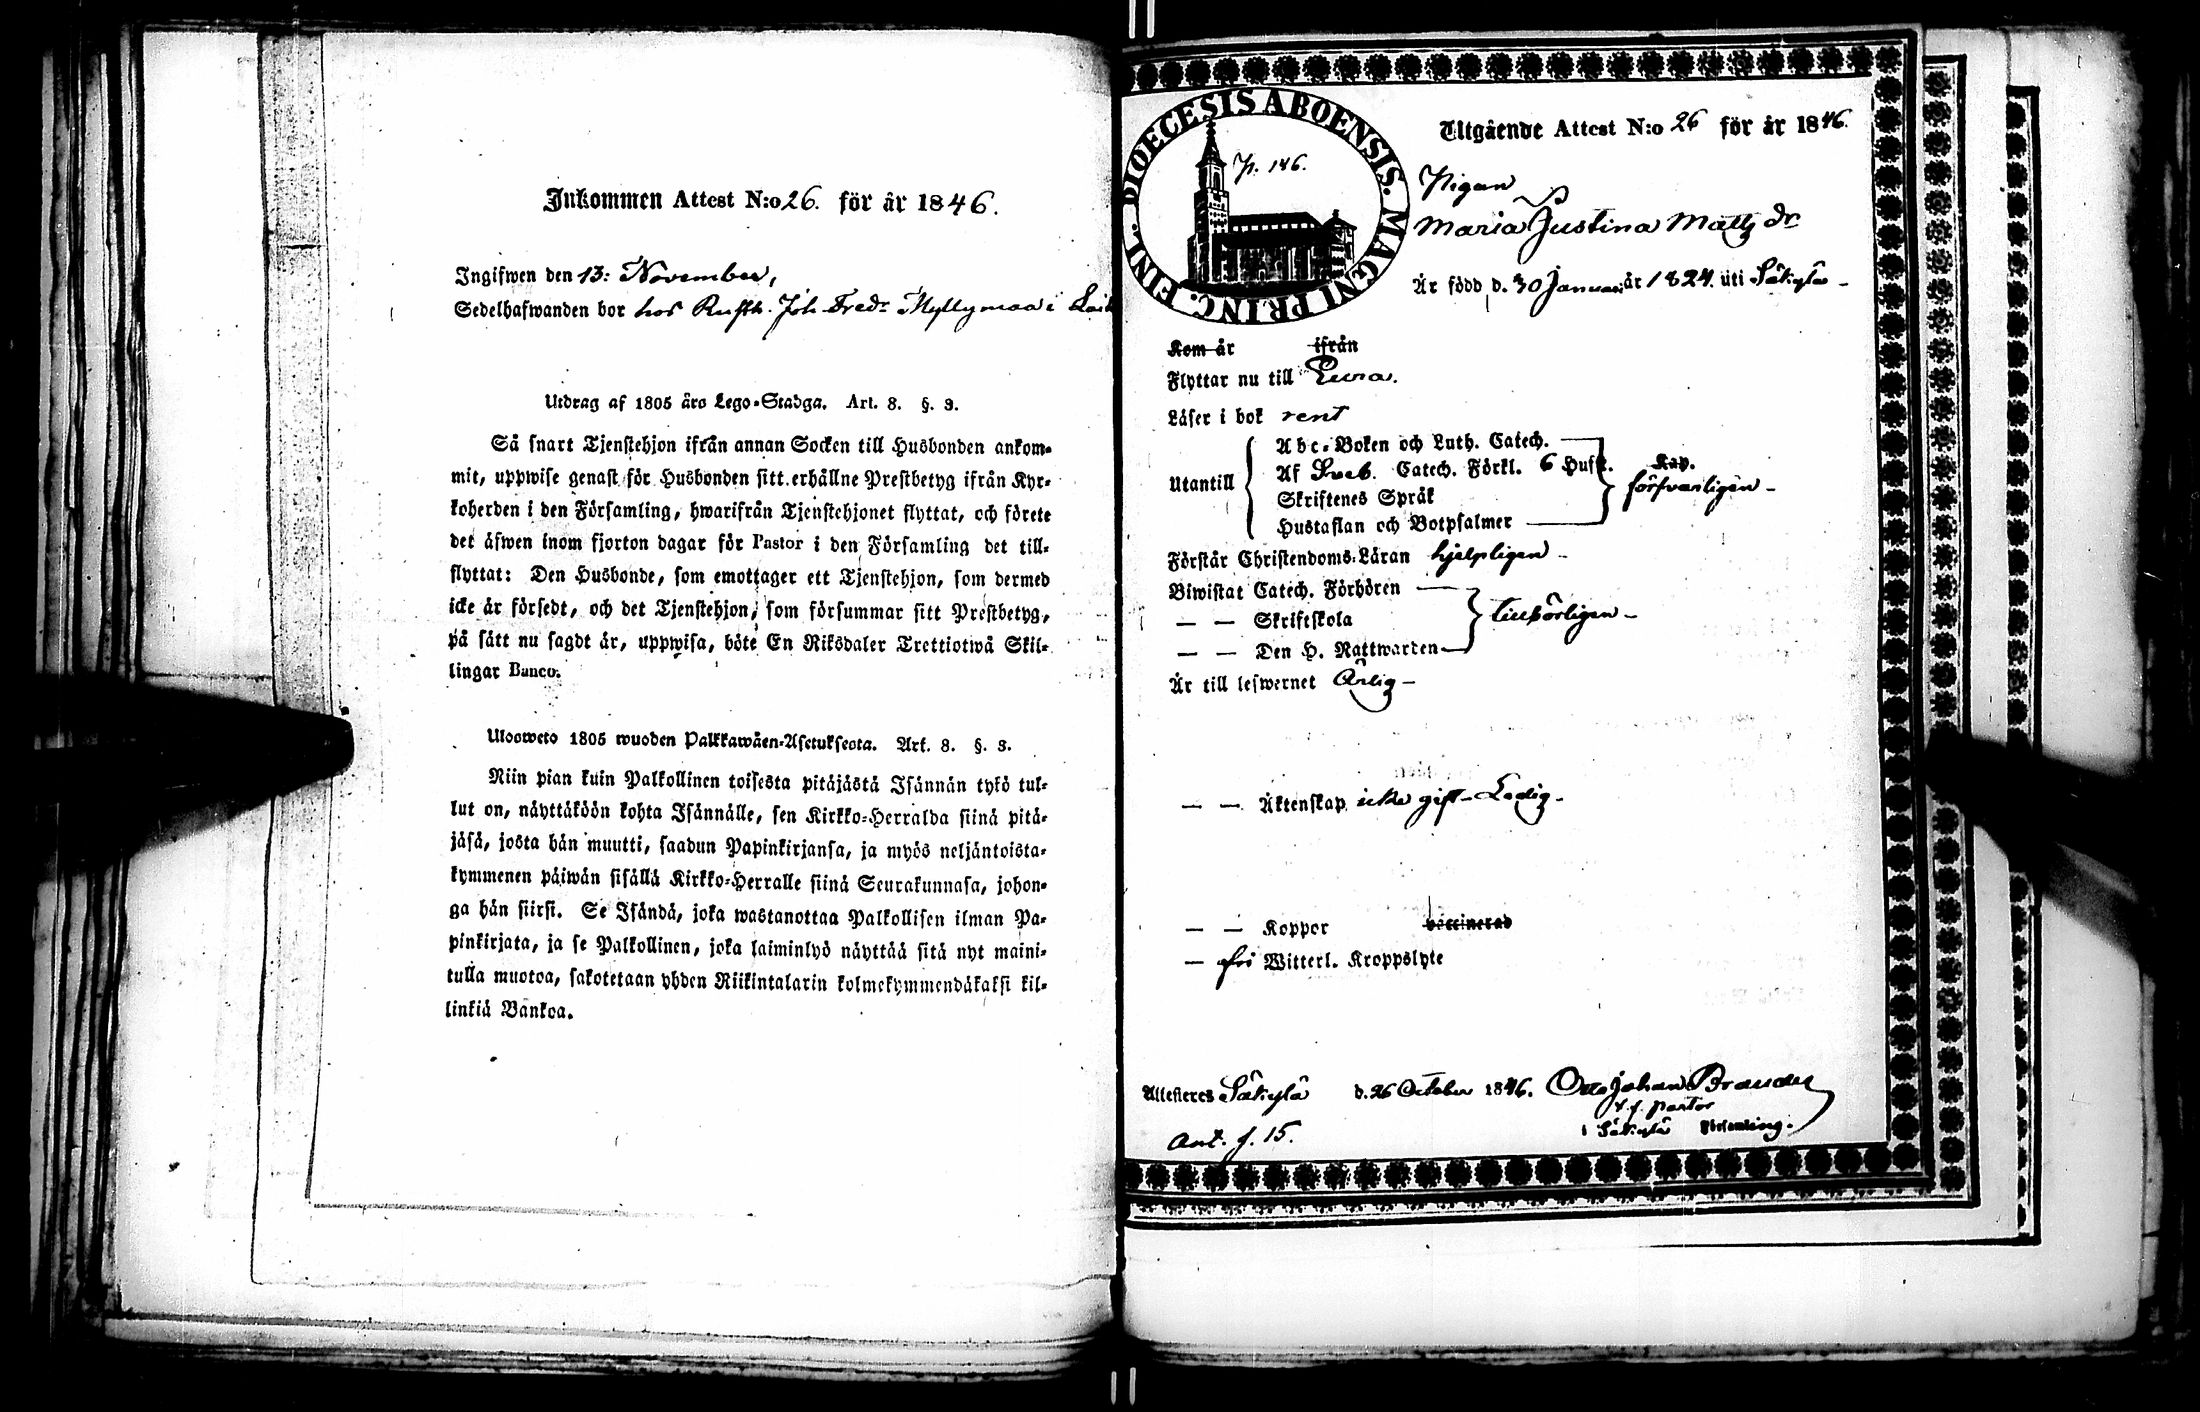 Inkommen Attest N:o 26. för år 1846.
Ingifwen den 13: November,
Sedelhafwanden bor hos Rusth. Joh Fredr Myllymaa i
Utdrag af 1805 års Lego-Stadga. Art. 8. §. 3.
Så snart Tjenstehjon ifrån annan Socken till Husbonden ankom-
mit, uppwise genast för Husbonden sitt erhållne Prestbetyg ifrån Kyr-
koherden i den Församling, hwarifrån Tjenstehjonet flyttat, och förete
det äfwen inom fjorton dagar för Pastor i den Församling det till-
flyttat: Den Husbonde, som emottager ett Tjenstehjon, som dermed
icke är försedt, och det Tjenstehjon, som försummar sitt Prestbetyg,
på sätt nu sagdt är, uppwisa, böte En Riksdaler Trettiotwå Skil-
lingar Banco.
Ulosweto 1805 wuoden Palkkawäen-Asetuksesta. Art. 8. §. 3.
Niin pian kuin Palkollinen toisesta pitäjästä Isännän tykö tul-
lut on, näyttäköön kohta Isännälle, sen Kirkko-Herralda siinä pitä-
jäsä, josta hän muutti, saadun Papinkirjansa, ja myös neljäntoista-
kymmenen päiwän sisällä Kirkko-Herralle siinä Seurakunnasa, johon-
ga hän siirsi. Se Isändä, joka wastanottaa Palkollisen ilman Pa-
pinkirjata, ja se Palkollinen, joka laiminlyö näyttää sitä nyt maini-
tulla muotoa, sakotetaan yhden Riikintalarin kolmekymmendäkaksi kil-
linkiä Bankoa.
DIOECESIS ABOENSIS. MAGNI PRINC. FINL.
P. 186.
Utgående Attest N:o 26 för år 1846.
Pigan
Maria Justina Matts dr
Är född d. 30 Januari år 1824. uti Säkylä -
Kom år ifrån
Flyttar nu till Eura.
Läser i bok rent
Utantill
Abc-Boken och Luth. Catech.
Af Sveb. Catech. Förkl. 6 Hufst. Kap.
Skriftenes Språk
Hustaflan och Botpsalmer
försvarligen -
Förstår Christendoms-Läran hjelpligen -
Biwistat Catech. Förhören
— — Skriftskola
— — Den H. Nattwarden
tillbörligen -
Är till lefwernet Ärlig -
— — Äktenskap icke gift - Ledig -
— — Koppor vaccinerad
— fri Witterl. Kroppslyte
Attesteres Säkylä d. 26 October 1846. Otto Johan Brander
t. f. Pastor
i Säkylä Församling.
Ant. f. 15.